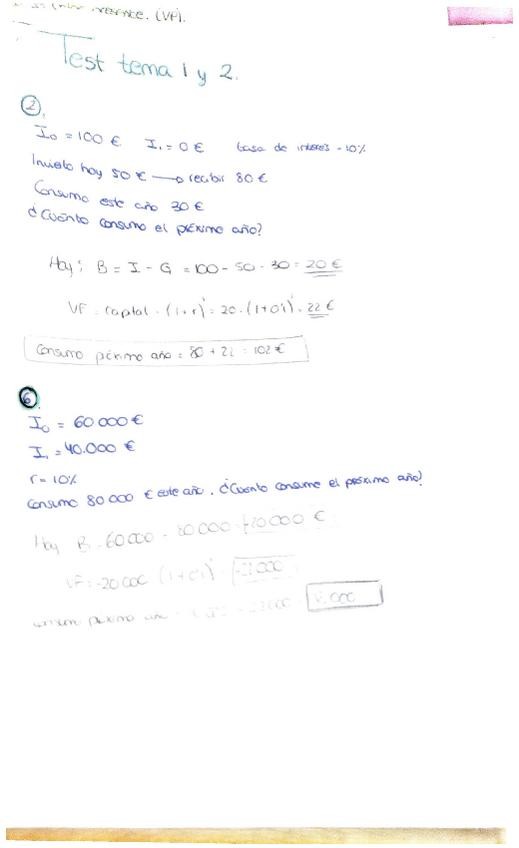 (VP).
Test tema 1 y 2.
②.
I₀ = 100 € I₁ = 0 € tasa de interes = 10%
Invierto hoy 50 € → recibir 80 €
Consumo este año 30 €
¿Cuánto consumo el próximo año?
Hoy: B = I - G = 100 - 50 - 30 = 20 €
VF = capital · (1+r)¹ = 20 · (1+0'1)¹ = 22 €
Consumo próximo año = 80 + 22 = 102 €
⑥.
I₀ = 60 000 €
I₁ = 40.000 €
r = 10%
Consumo 80 000 € este año. ¿Cuánto consume el próximo año?
Hoy B = 60 000 - 80 000 = -20 000 €
VF = -20 000 (1+0'1)¹
próximo año